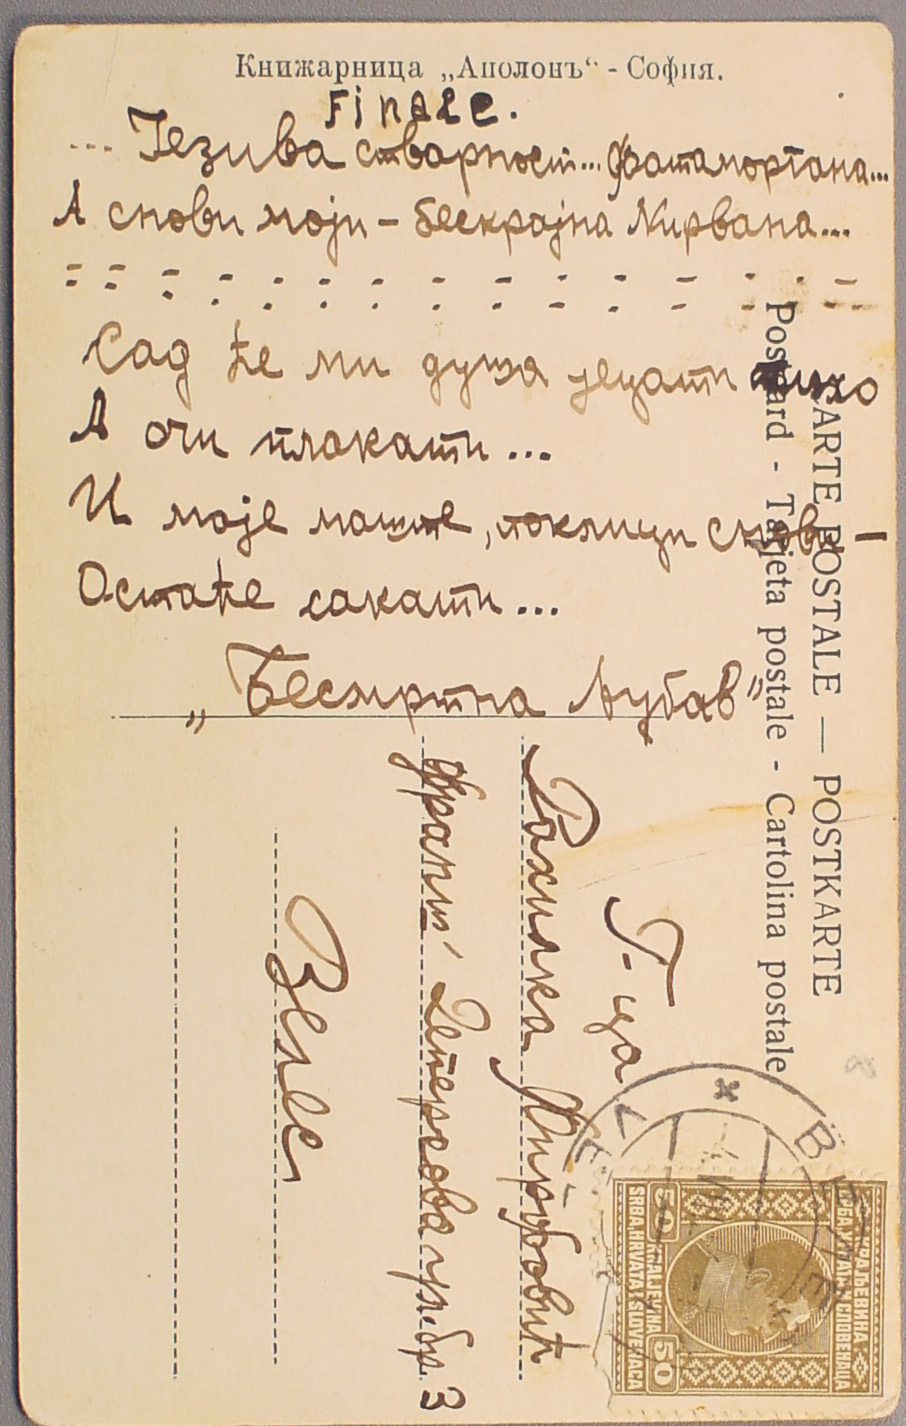 Книжарница „Аполонъ“ - София.
Finale.
... Језива стварност... Фатаморгана...
А снови моји – бескрајна Нирвана...
Сад ће ми душа јецати тихо
А очи плакати...
И моје маште, поклици снова –
Остаће сакати...
„Бесмртна Љубав“
CARTE POSTALE — POSTKARTE
Postcard - Tarjeta postale - Cartolina postale
Г-ца
Рахилка
Франш' Деперсова ул. бр. 3
Велес
КРАЉЕВИНА
СРБА, ХРВАТА И СЛОВЕНАЦА
50 50
KRALJEVINA
SRBA, HRVATA I SLOVENACA